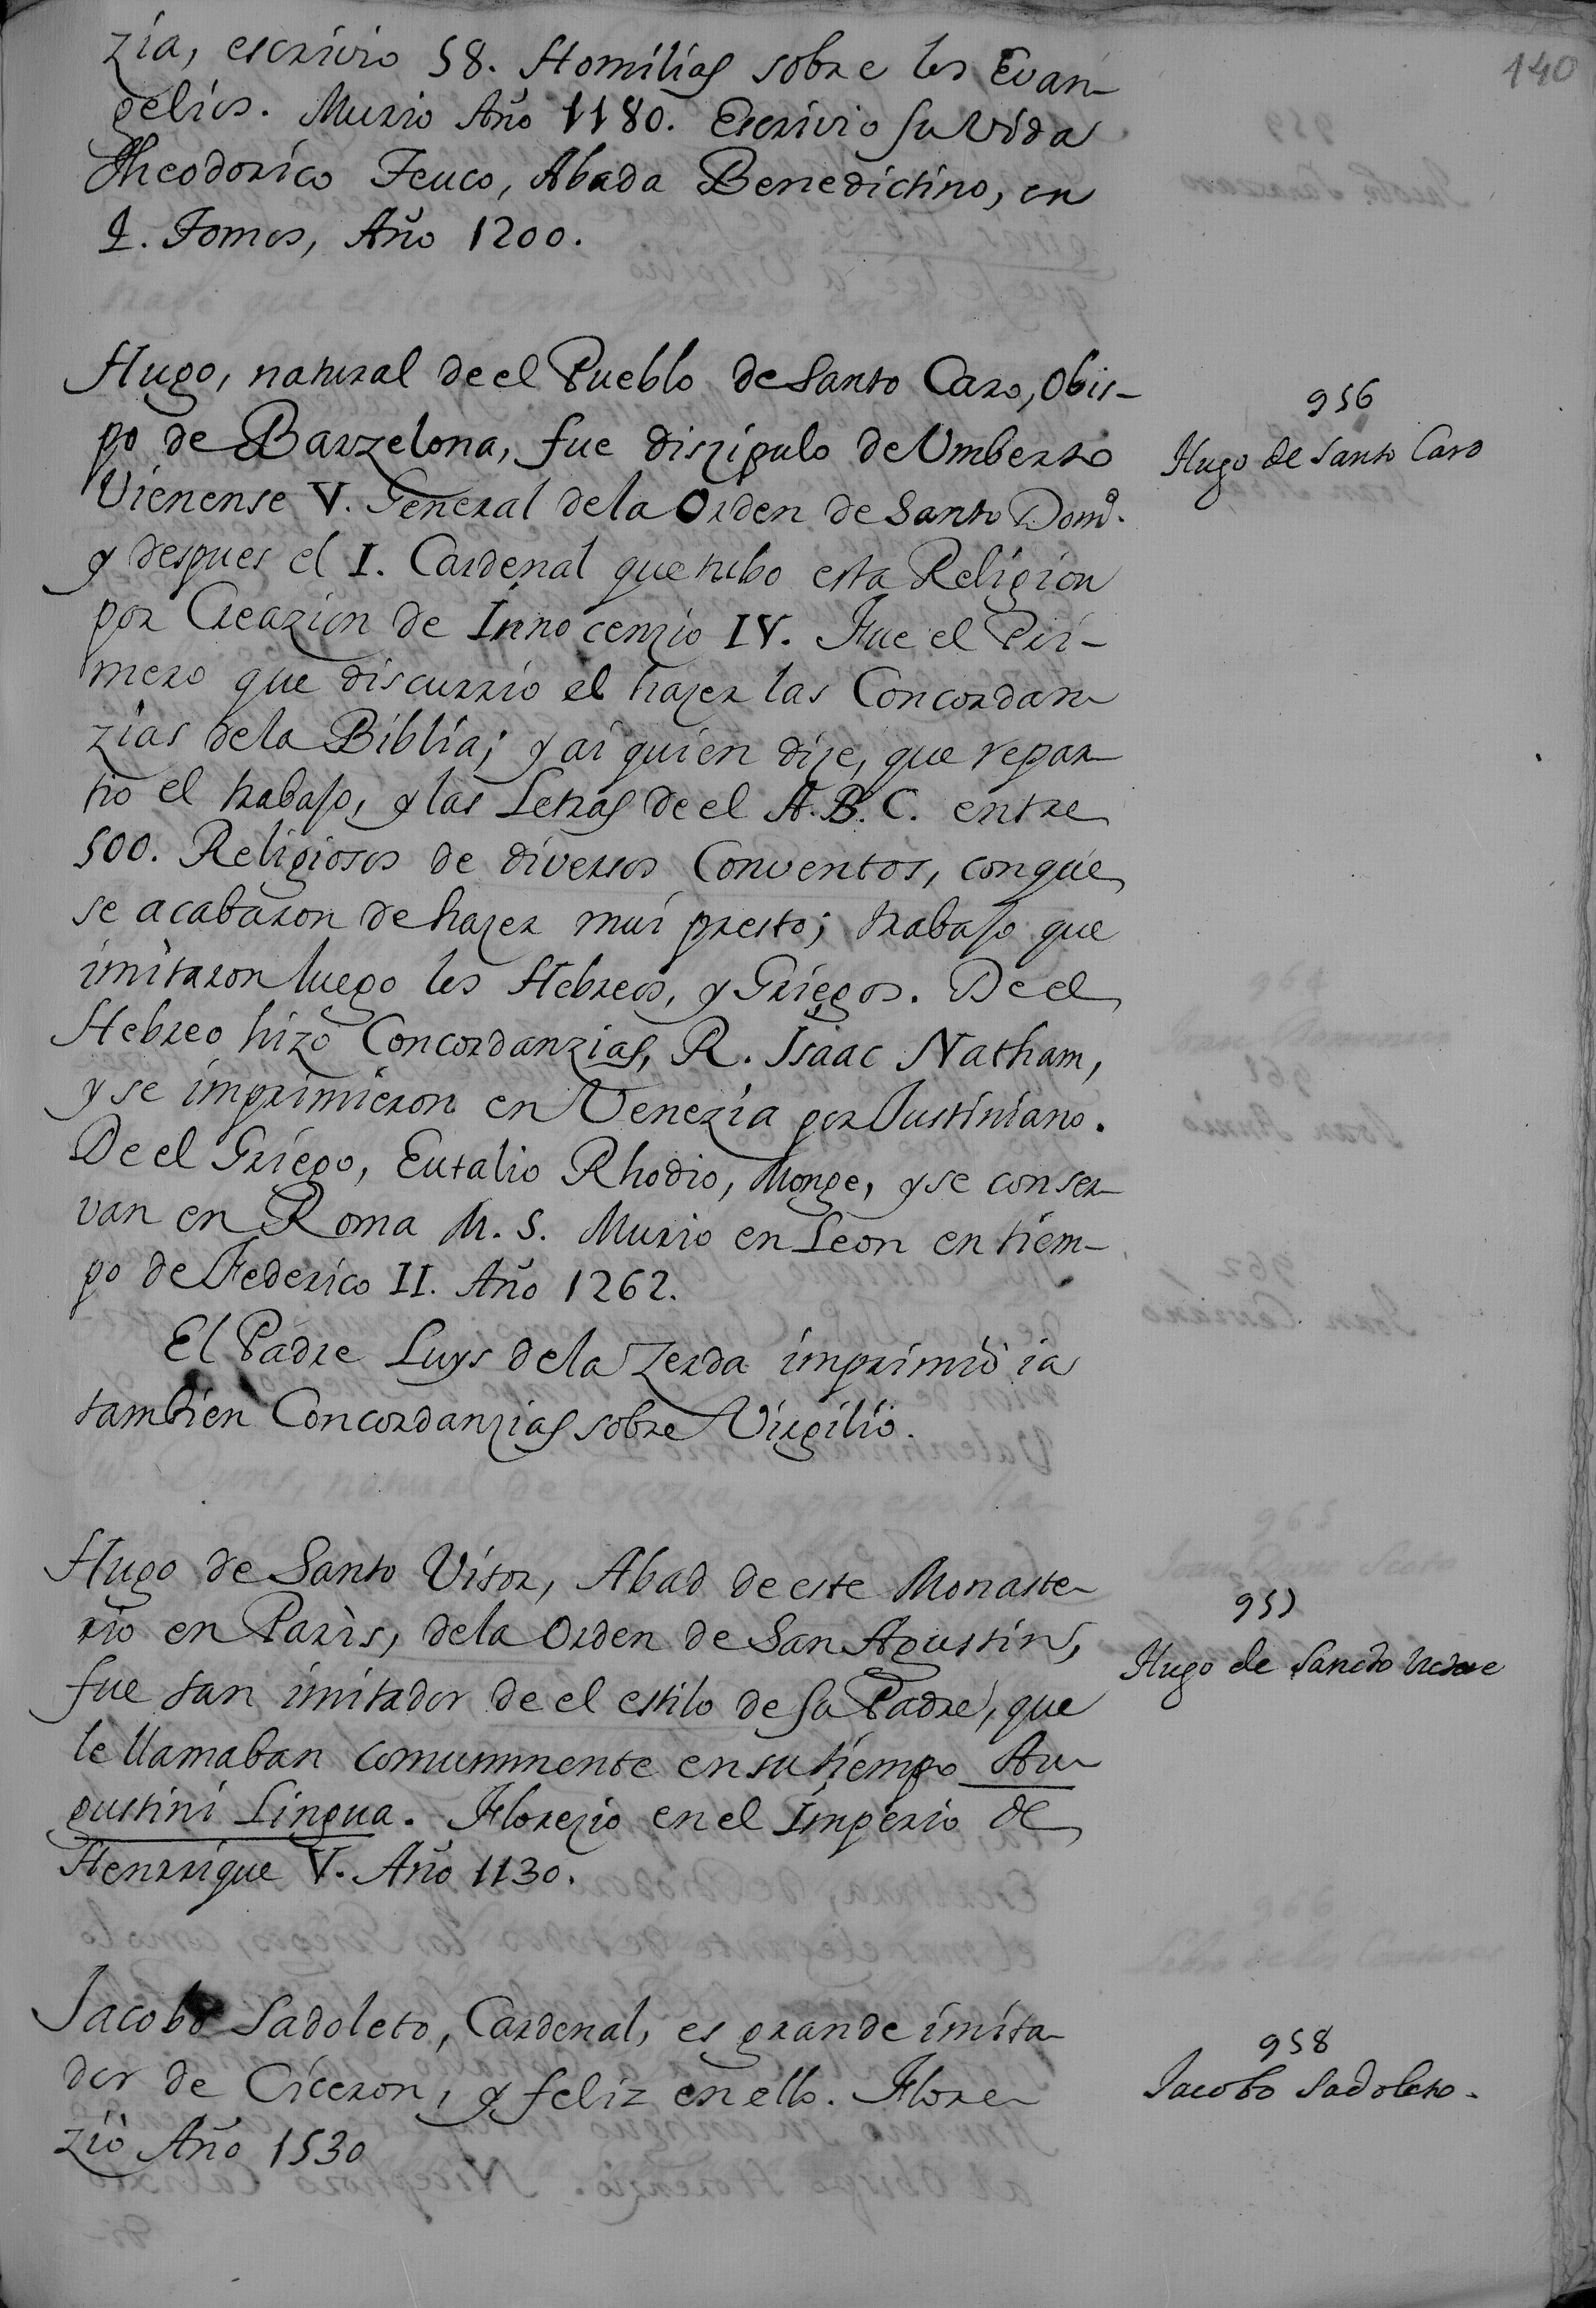 140
zia, escrivio 58. Homilias sobre los Evan-
gelios. Murio Año 1180. Escrivio su Vida
Theodorico Teuco, Abada Benedictino, en
2. Tomos, Año 1200.
956
Hugo de Santo Caro
Hugo, natural de el Pueblo de Santo Caro, Obis-
po de Barzelona, fue diszipulo de Umberto
Vienense V. General de la Orden de Santo Domº.
y despues el I. Cardenal que tubo esta Religion
por Creazion de Innocenzio IV. Fue el Pri-
mero que discurrio el hazer las Concordan-
zias de la Biblia; y ai quien dize, que repar-
tio el trabajo, y las Letras de el A.B.C. entre
500. Religiosos de diversos Conventos, conque
se acabaron de hazer mui presto; trabajo que
imitaron luego los Hebreos, y Griegos. De el
Hebreo hizo Concordanzias, R. Isaac Natham,
y se imprimieron en Venezia por Justiniano.
De el Griego, Eutalio Rhodio, Monge, y se conser-
van en Roma M.S. Murio en Leon en tiem-
po de Federico II. Año 1262.
El Padre Luys de la Zerda imprimiò ia
tambien Concordanzias sobre Virgilio.
957
Hugo de Sancto Victore
Hugo de Santo Vitor, Abad de este Monaste-
rio en Paris, de la Orden de San Agustin,
fue tan imitador de el estilo de su Padre, que
le llamaban comummente en su tiempo Au-
gustini Lingua. Florezio en el Imperio de
Henrrique V. Año 1130.
958
Jacobo Sadoleto.
Jacobo Sadoleto, Cardenal, es grande imita-
dor de Ciceron, y feliz en ello. Flore-
ziò Año 1530